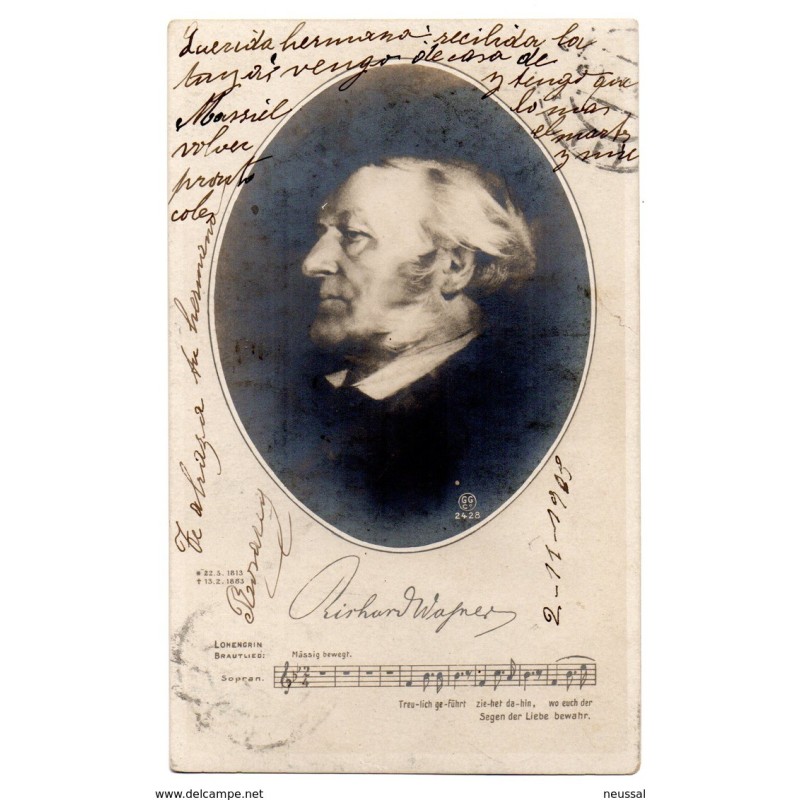 Querida hermana: recibida la
tuya vengo de casa de
y tengo que
Massiel
volver
pronto
Te abraza tu hermano
2-11-1908
GG
Co
2428
* 22.5. 1813
† 13.2. 1883
Richard Wagner
LOHENGRIN
BRAUTLIED:
Mässig bewegt.
Sopran.
Treu-lich ge-führt zie-het da-hin, wo euch der
Segen der Liebe bewahr.
www.delcampe.net
neussal